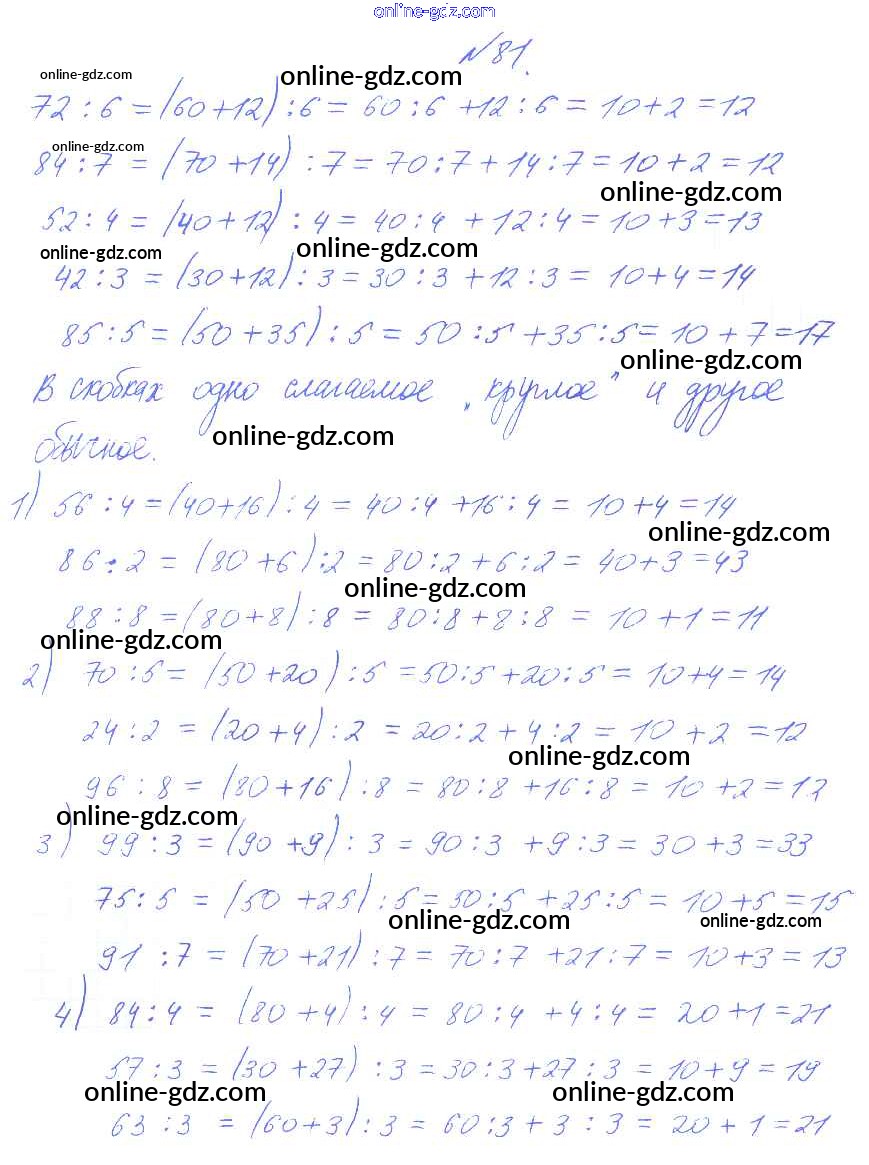 online-gdz.com
№81.
online-gdz.com online-gdz.com
72 : 6 = (60+12) : 6 = 60 : 6 + 12 : 6 = 10 + 2 = 12
online-gdz.com
84 : 7 = (70 + 14) : 7 = 70 : 7 + 14 : 7 = 10 + 2 = 12
online-gdz.com
52 : 4 = (40 + 12) : 4 = 40 : 4 + 12 : 4 = 10 + 3 = 13
online-gdz.com online-gdz.com
42 : 3 = (30 + 12) : 3 = 30 : 3 + 12 : 3 = 10 + 4 = 14
85 : 5 = (50 + 35) : 5 = 50 : 5 + 35 : 5 = 10 + 7 = 17
online-gdz.com
В скобках одно слагаемое „круглое" и другое
online-gdz.com
обычное.
1) 56 : 4 = (40+16) : 4 = 40 : 4 + 16 : 4 = 10 + 4 = 14
online-gdz.com
86 : 2 = (80 + 6) : 2 = 80 : 2 + 6 : 2 = 40 + 3 = 43
online-gdz.com
88 : 8 = (80 + 8) : 8 = 80 : 8 + 8 : 8 = 10 + 1 = 11
online-gdz.com
2) 70 : 5 = (50 + 20) : 5 = 50 : 5 + 20 : 5 = 10 + 4 = 14
24 : 2 = (20 + 4) : 2 = 20 : 2 + 4 : 2 = 10 + 2 = 12
online-gdz.com
96 : 8 = (80 + 16) : 8 = 80 : 8 + 16 : 8 = 10 + 2 = 12
online-gdz.com
3) 99 : 3 = (90 + 9) : 3 = 90 : 3 + 9 : 3 = 30 + 3 = 33
75 : 5 = (50 + 25) : 5 = 50 : 5 + 25 : 5 = 10 + 5 = 15
online-gdz.com online-gdz.com
91 : 7 = (70 + 21) : 7 = 70 : 7 + 21 : 7 = 10 + 3 = 13
4) 84 : 4 = (80 + 4) : 4 = 80 : 4 + 4 : 4 = 20 + 1 = 21
57 : 3 = (30 + 27) : 3 = 30 : 3 + 27 : 3 = 10 + 9 = 19
online-gdz.com online-gdz.com
63 : 3 = (60 + 3) : 3 = 60 : 3 + 3 : 3 = 20 + 1 = 21